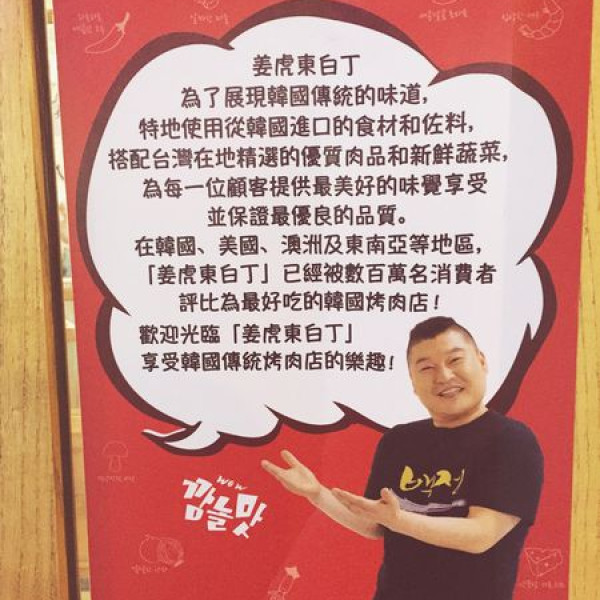 姜虎東白丁
為了展現韓國傳統的味道,
特地使用從韓國進口的食材和佐料,
搭配台灣在地精選的優質肉品和新鮮蔬菜,
為每一位顧客提供最美好的味覺享受
並保證最優良的品質。
在韓國、美國、澳洲及東南亞等地區,
「姜虎東白丁」已經被數百萬名消費者
評比為最好吃的韓國烤肉店!
歡迎光臨「姜虎東白丁」
享受韓國傳統烤肉店的樂趣!
wow
깜놀맛
백정